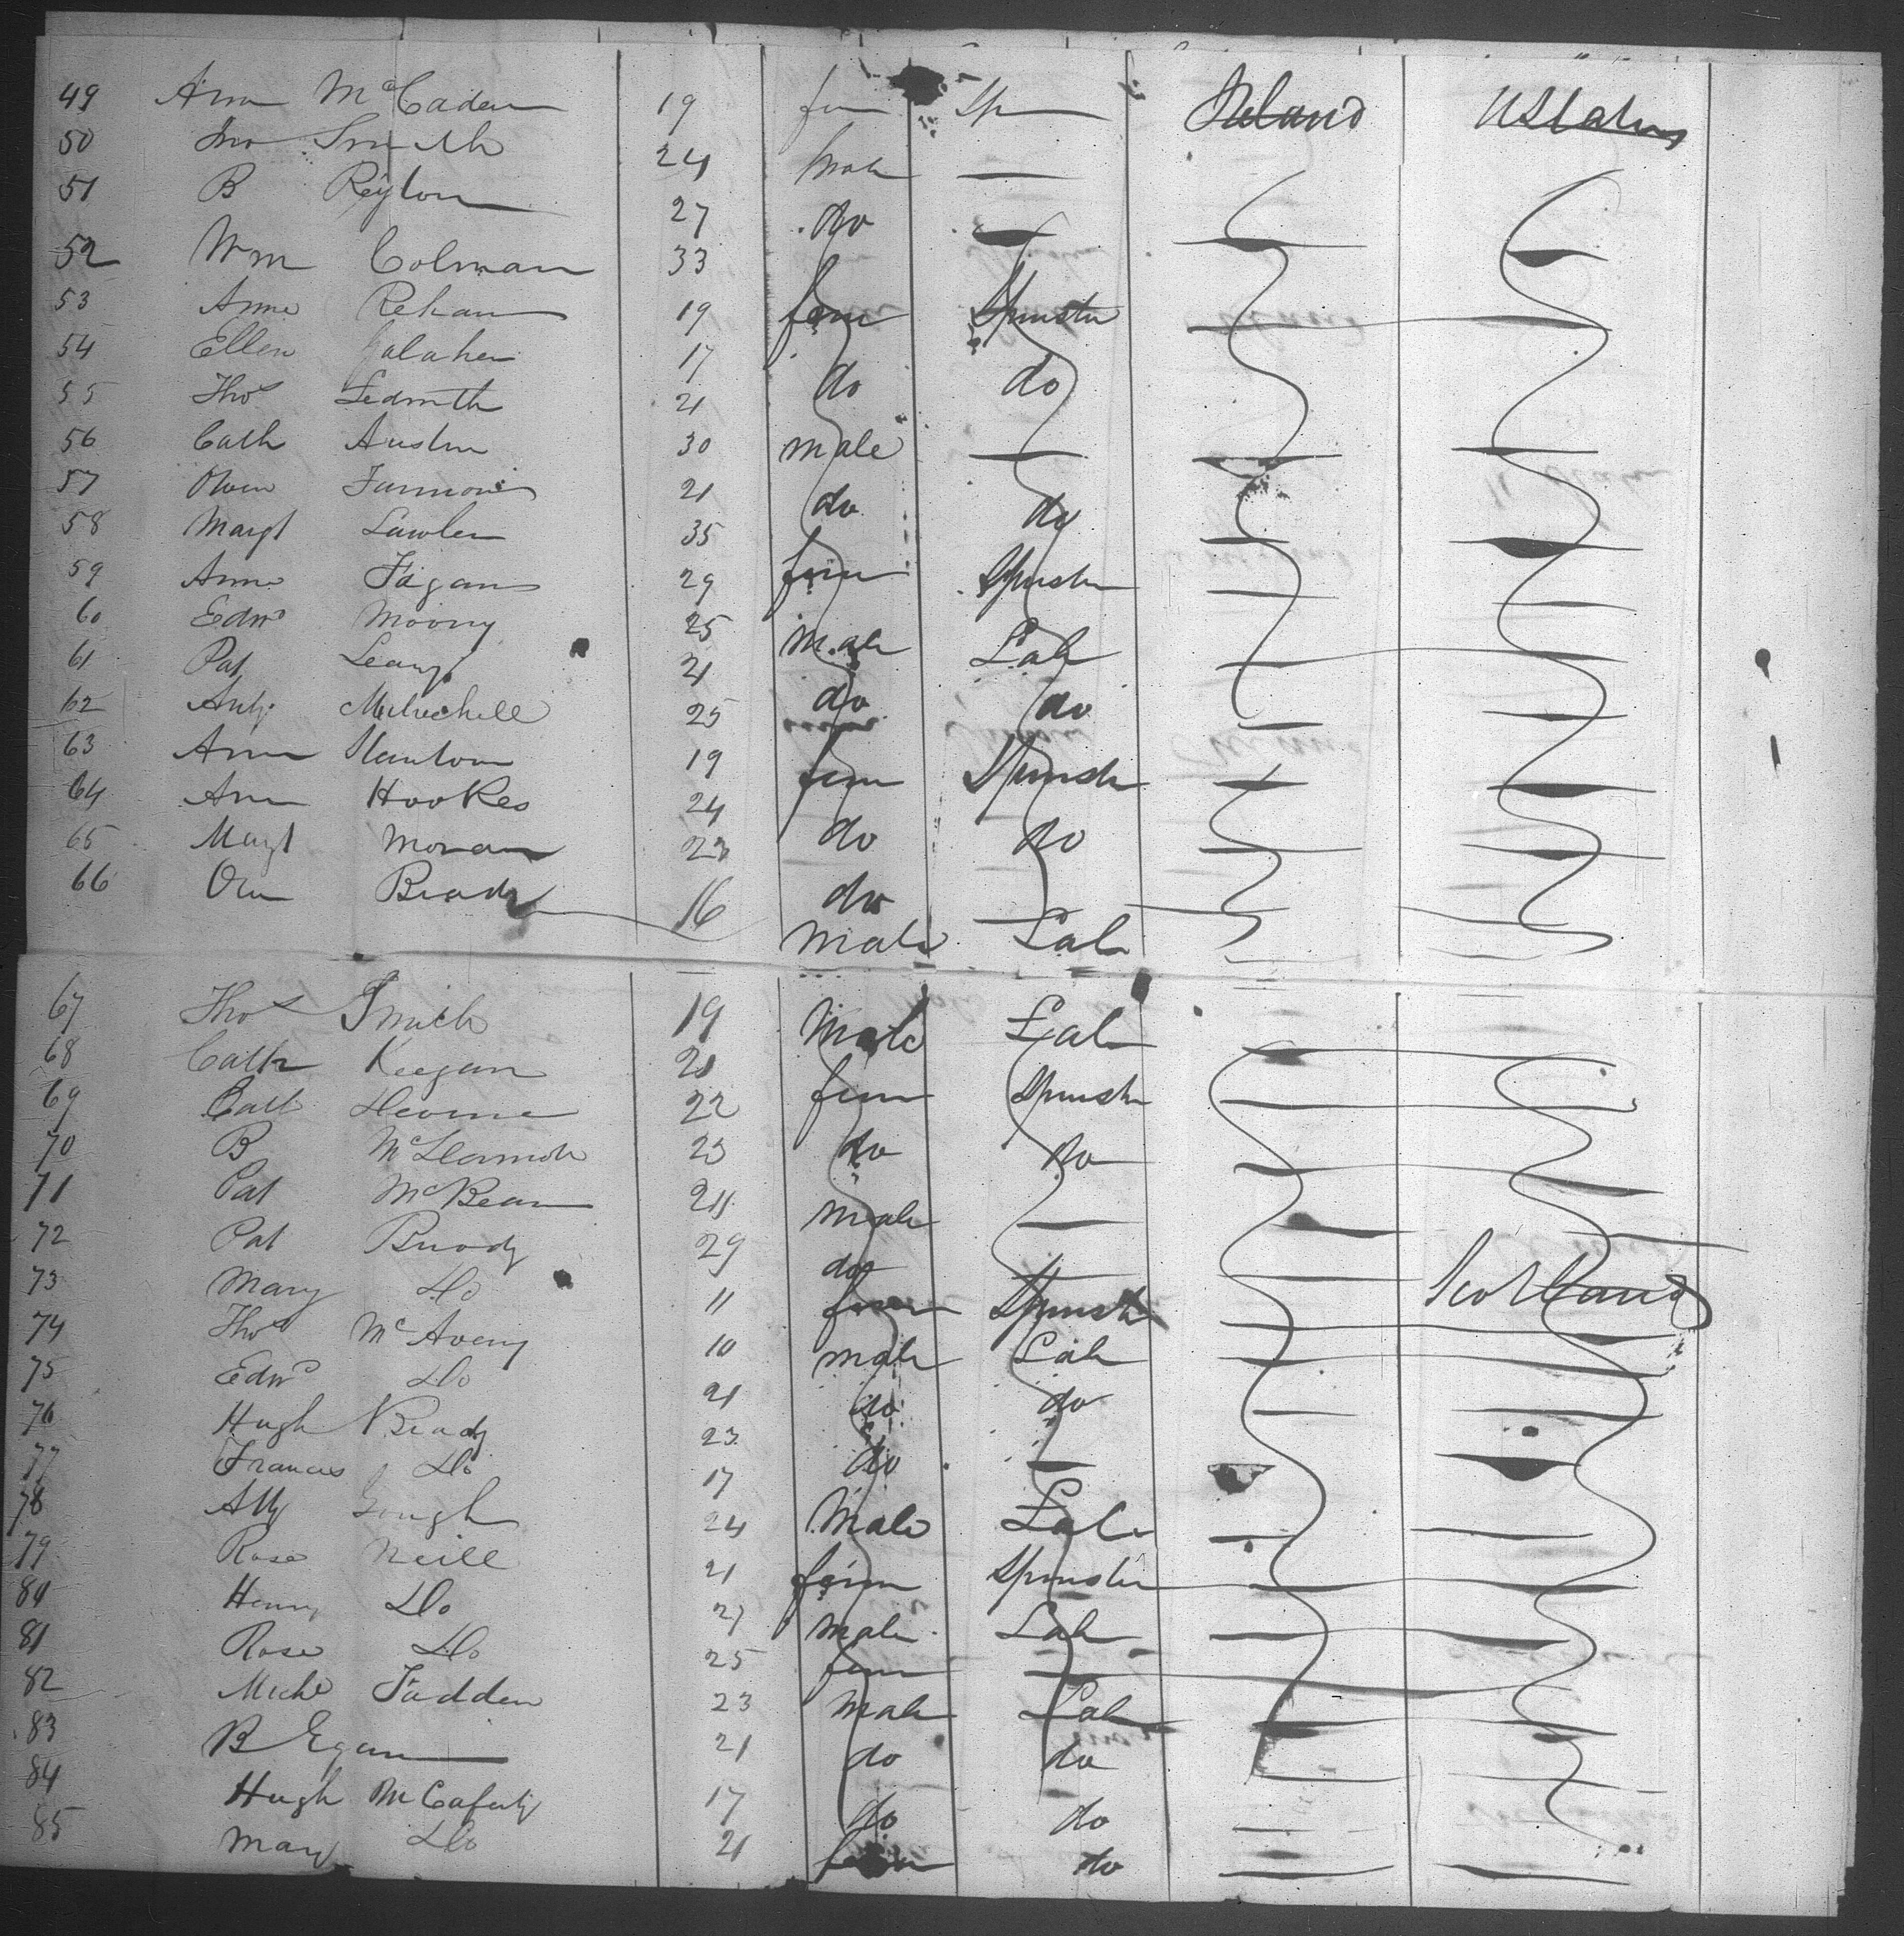 49 Ann McCaden 19 fem Sp Ireland U States
50 Jno Smith 24 male —
51 B Reylon 27 do —
52 Wm Colman 33
53 Anne Rehan 19 fem Spinster
54 Ellen Galaher 17 do do
55 Thos Ledwith 21
56 Cath Austin 30 male —
57 Owen 21 do do
58 Margt Lawler 35 fem Spinster
59 Anne Fagan 29
60 Edwd Moony 25 male Lab
61 Pat Leavy 21 do do
62 Anty 25
63 Ann 19 fem Spinster
64 Ann Hookes 24 do do
65 Margt Moran 23 do —
66 Own Brady 16 Male Lab
67 Thos Smith 19 Male Lab
68 Cath Keegan 21 fem Spinster
69 Cath 22 do do
70 B 23
71 Pat McBean 24 male —
72 Pat Brady 29 do — Scotland
73 Mary Do 11 fem Spinst
74 Thos McAveny 10 male Lab
75 Edwd Do 21 do do
76 Hugh Brady 23 do —
77 Francis Do 17
78 Gough 24 Male Lab
79 Rose Neill 21 fem Spinster
80 Henry Do 27 male Lab
81 Rose Do 25 fem —
82 Michl Fadden 23 male Lab
83 B Egan 21 do do
84 Hugh McCaferty 17 do do
85 Mary Do 21 fem do